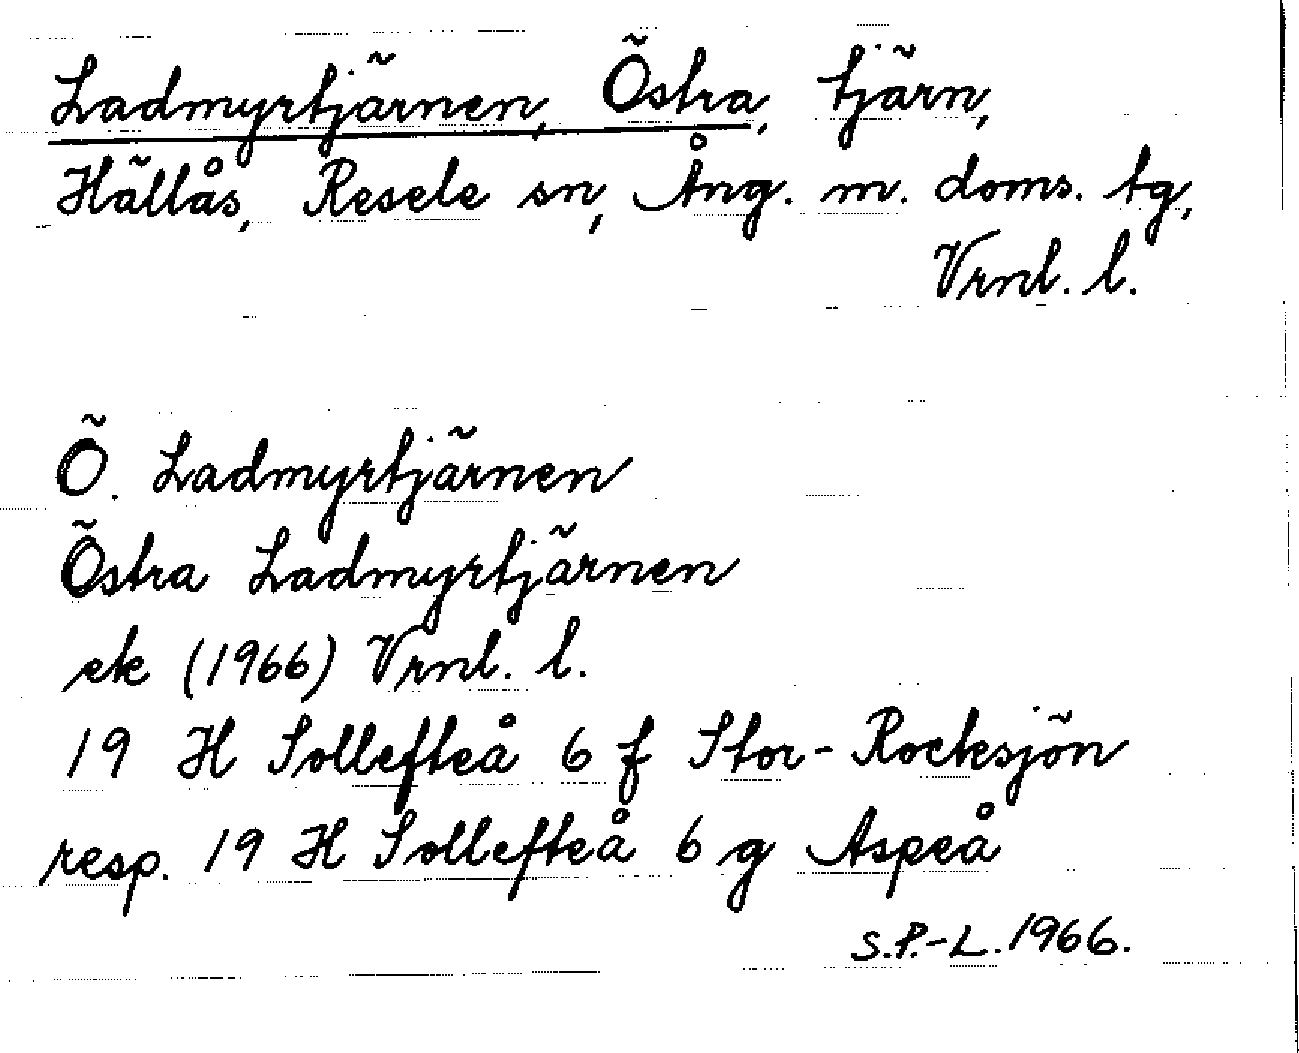 Ladmyrtjärnen, Östra, tjärn,
Hällås, Resele sn, Ång. m. doms. tg,
Vrnl. l.
Ö. Ladmyrtjärnen
Östra Ladmyrtjärnen
ek (1966) Vrnl. l.
19 H Sollefteå 6 f Stor-Rocksjön
resp. 19 H Sollefteå 6 g Aspeå
S.P.-L. 1966.